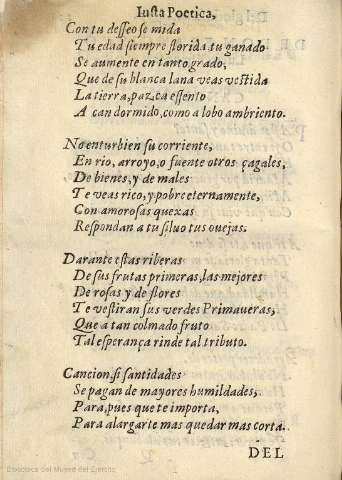 Iusta Poetica,
Con tu desseo se mida
Tu edad siempre florida tu ganado
Se aumente en tanto grado,
Que de su blanca lana veas vestida
La tierra, pazca essento
A can dormido, como a lobo ambriento.
No enturbien su corriente,
En rio, arroyo, o fuente otros çagales,
De bienes, y de males
Te veas rico, y pobre eternamente,
Con amorosas quexas
Respondan a tu siluo tus ouejas.
Darante estas riberas
De sus frutas primeras, las mejores
De rosas y de flores
Te vestiran sus verdes Primaueras,
Que a tan colmado fruto
Tal esperança rinde tal tributo.
Cancion, si santidades
Se pagan de mayores humildades,
Para, pues que te importa,
Para alargarte mas quedar mas corta.
DEL
Biblioteca del Museo del Ejército